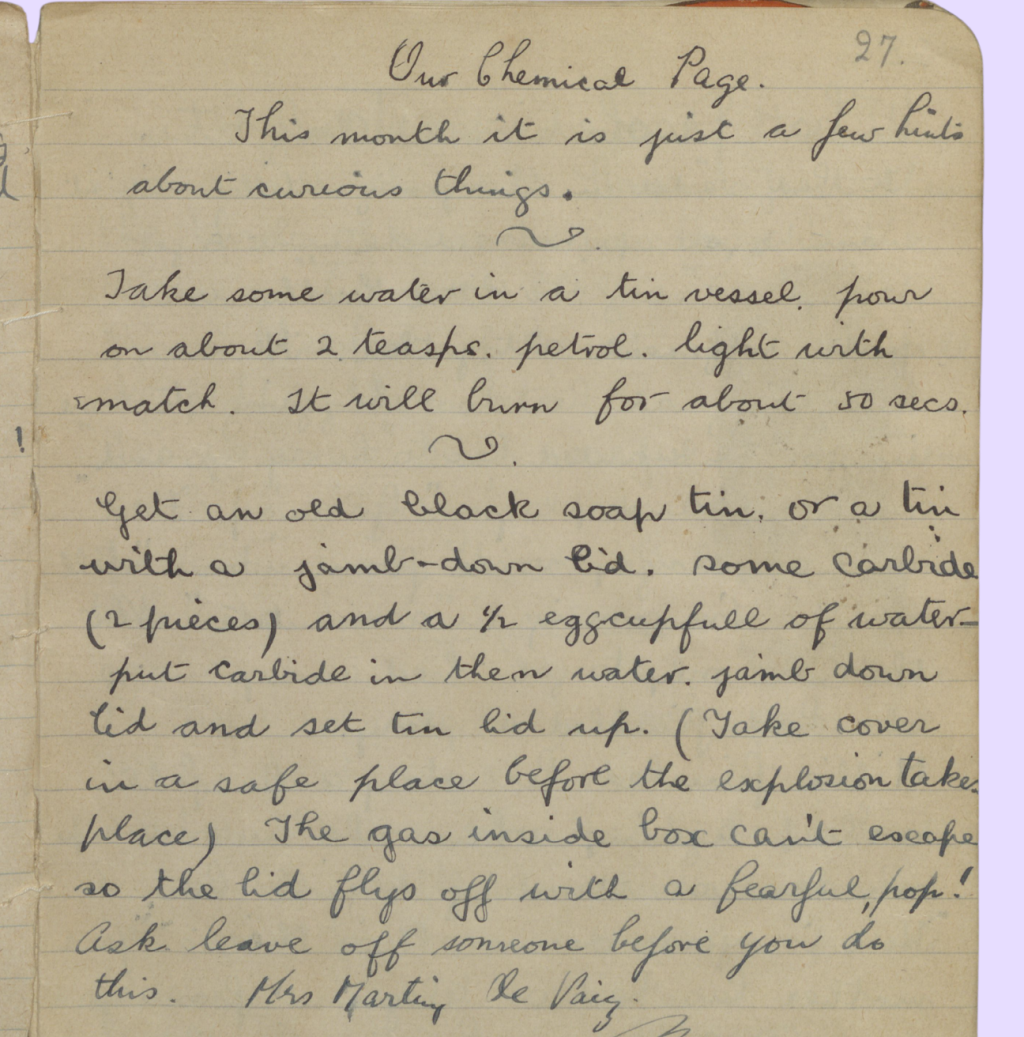 27.
Our Chemical Page.
This month it is just a few hints
about curious things.
Take some water in a tin vessel. pour
on about 2 teasps. petrol. light with
match. It will burn for about 50 secs.
!
Get an old black soap tin, or a tin
with a jamb-down lid. some carbide
(2 pieces) and a 1/2 eggcupfull of water-
put carbide in then water. jamb down
lid and set tin lid up. (Take cover
in a safe place before the explosion takes
place) The gas inside box can't escape
so the lid flys off with a fearful, pop!
Ask leave off someone before you do
this. Mrs Martin De